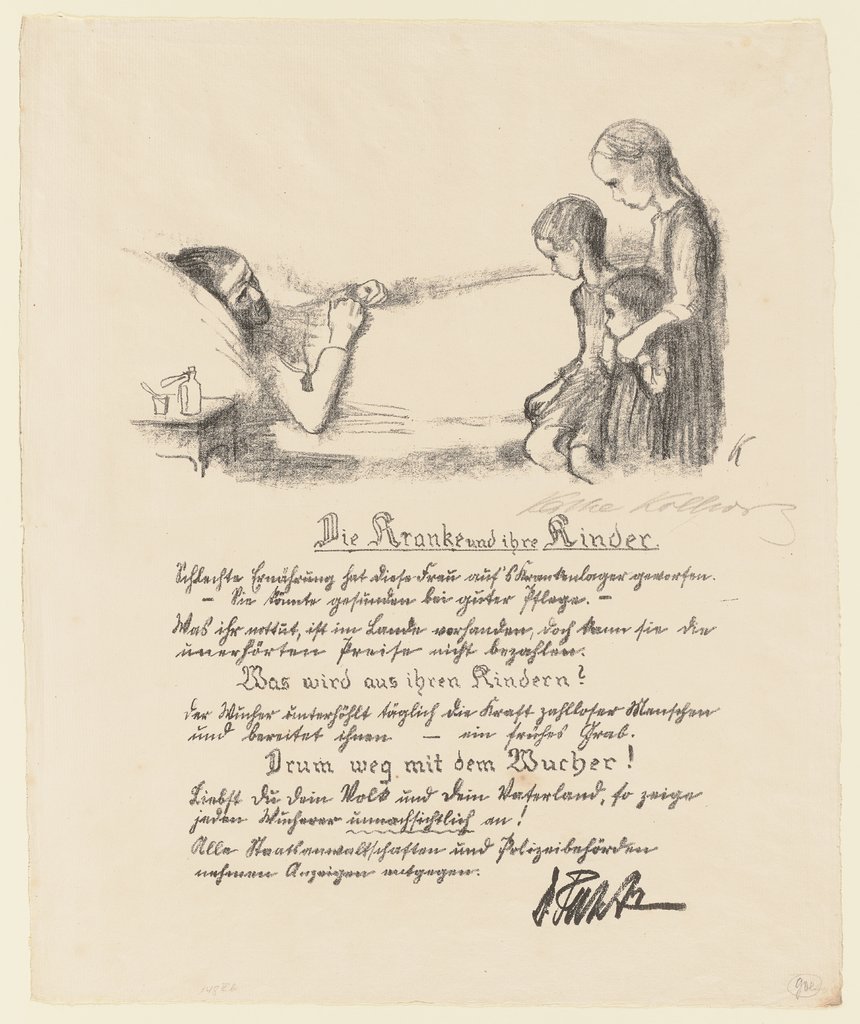 K
Käthe Kollwitz
Die Kranke und ihre Kinder.
Schlechte Ernährung hat diese Frau auf's Krankenlager geworfen.
– Sie könnte gesunden bei guter Pflege. –
Was ihr nottut, ist im Lande vorhanden, doch kann sie die
unerhörten Preise nicht bezahlen.
Was wird aus ihren Kindern?
Der Wucher unterhöhlt täglich die Kraft zahlloser Menschen
und bereitet ihnen – ein frühes Grab.
Drum weg mit dem Wucher!
Liebst Du Dein Volk und Dein Vaterland, so zeige
jeden Wucherer unnachsichtlich an!
Alle Staatsanwaltschaften und Polizeibehörden
nehmen Anzeigen entgegen.